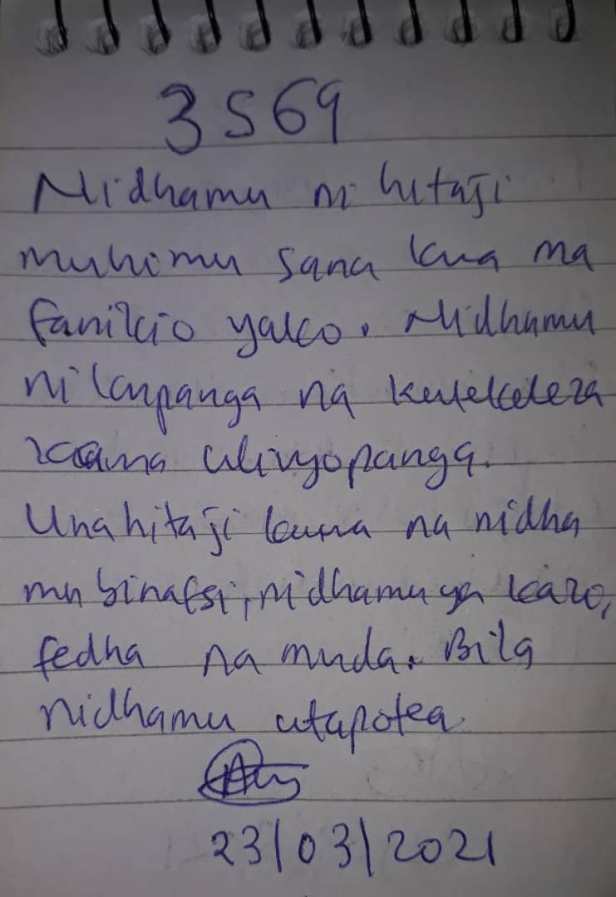 3569
Nidhamu ni hitaji
muhimu sana kwa ma
fanikio yako. Nidhamu
ni kupanga na kutekeleza
kama ulivyopanga.
Unahitaji kuwa na nidha
mu binafsi, nidhamu ya kazi,
fedha na muda. Bila
nidhamu utapotea.
23/03/2021